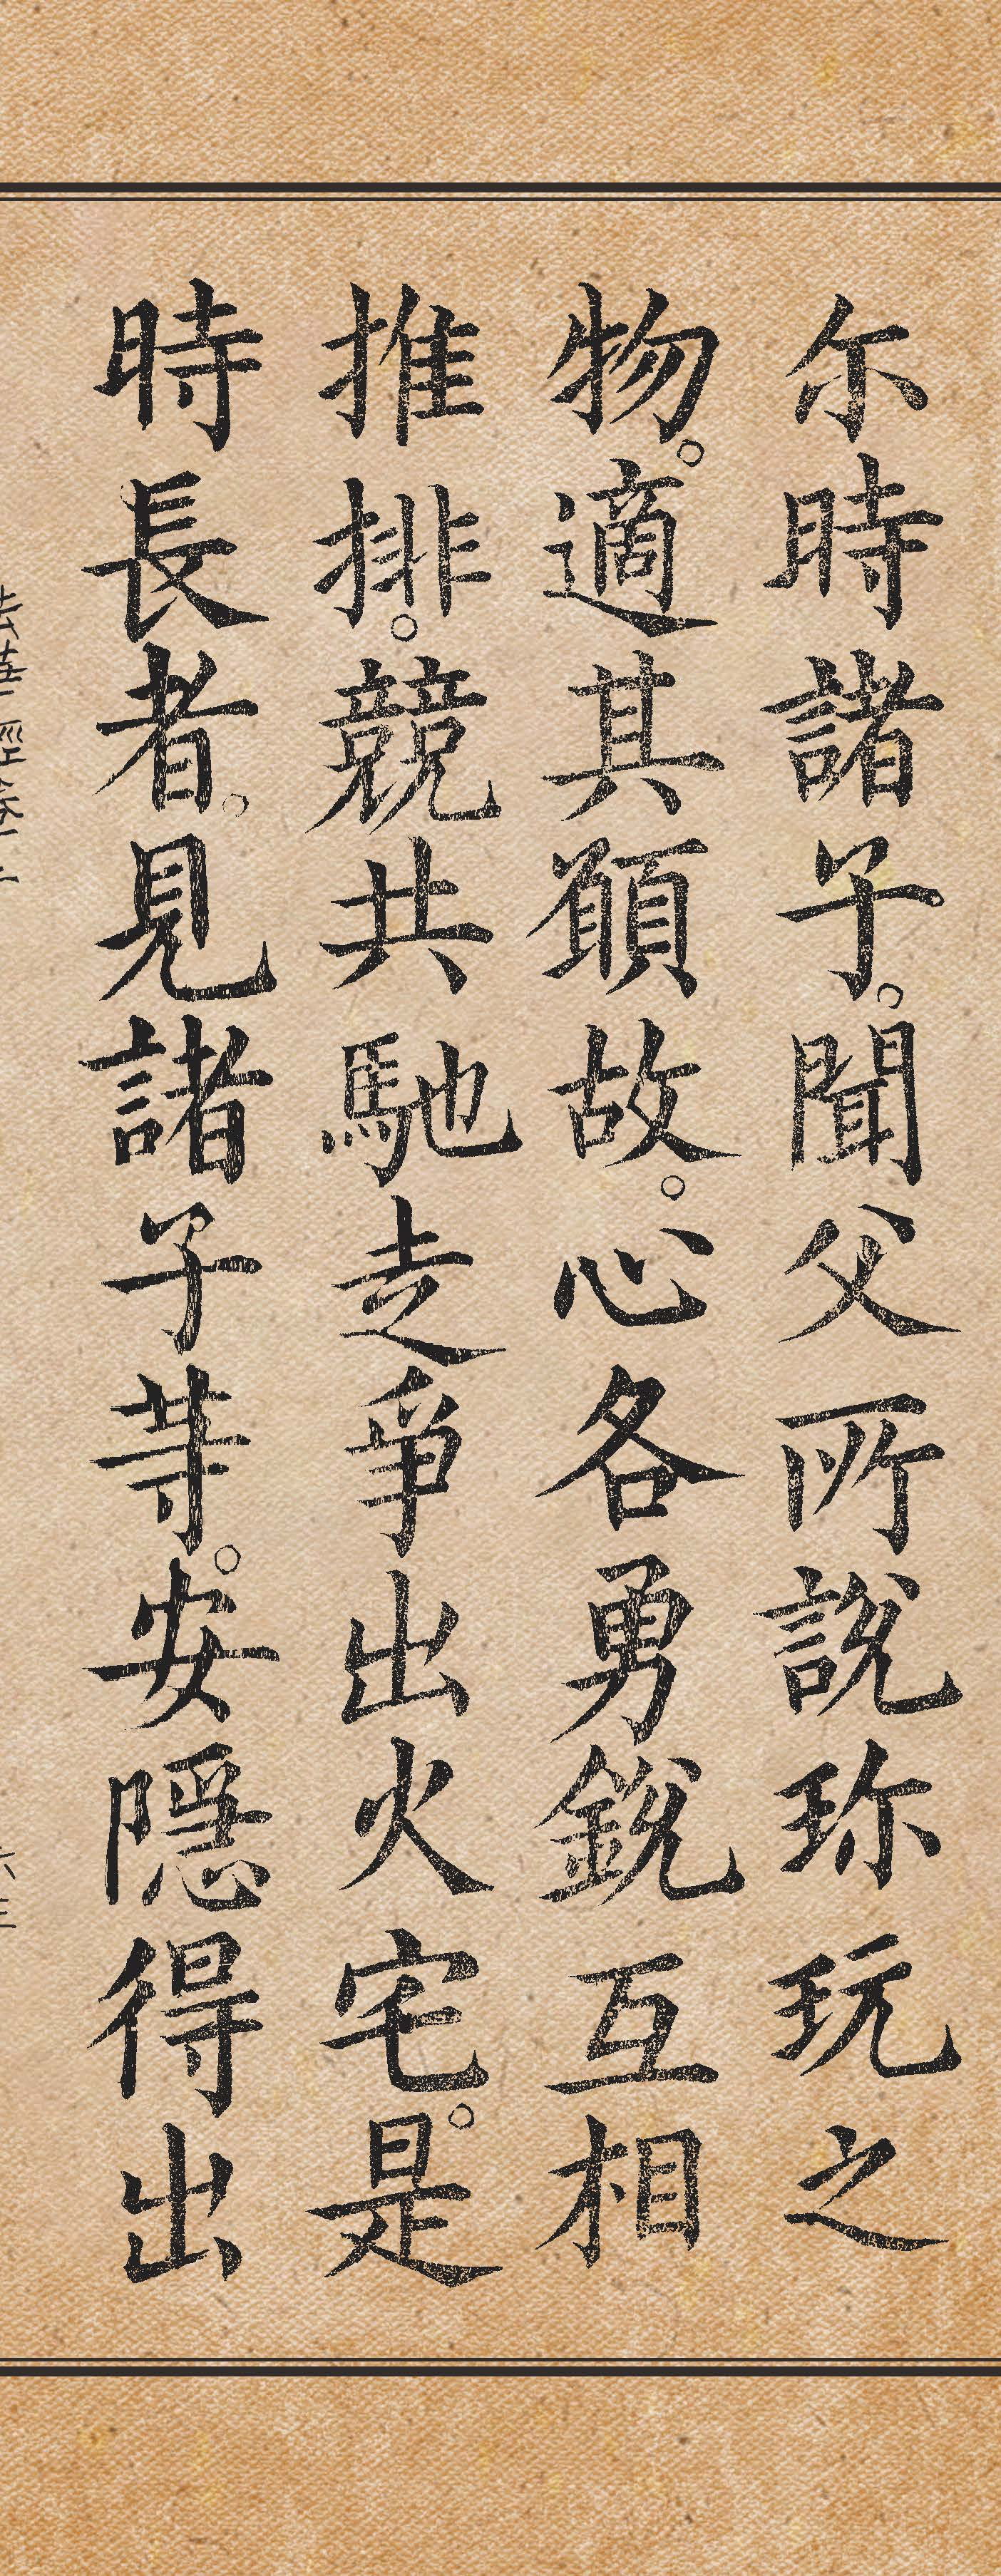 尒時諸子。聞父所說珎玩之
物。適其願故。心各勇銳互相
推排。競共馳走爭出火宅。是
時長者。見諸子等。安隱得出